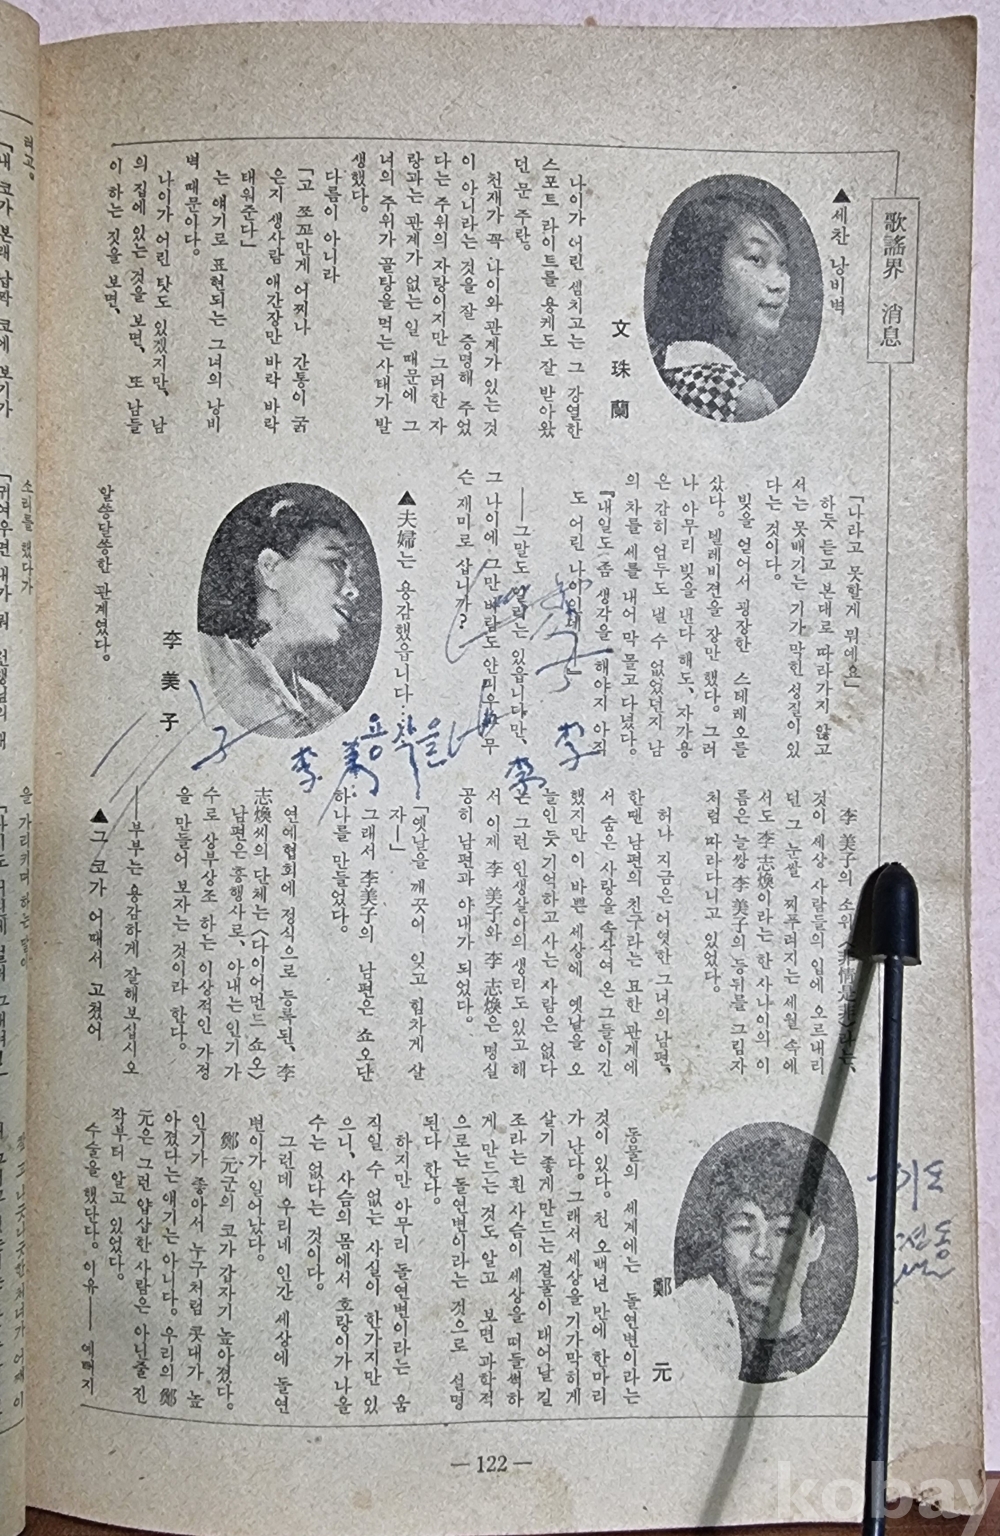 歌謠界 消息
▲세찬 낭비벽
文珠蘭
나이가 어린 셈치고는 그 강열한
스포트 라이트를 용케도 잘 받아왔
던 문 주란。
천재가 꼭 나이와 관계가 있는 것
이 아니라는 것을 잘 증명해 주었
다는 주위의 자랑이지만 그러한 자
랑과는 관계가 없는 일 때문에 그
녀의 주위가 골탕을 먹는 사태가 발
생했다。
다름이 아니라
「고 쪼꼬만게 어찌나 간통이 굵
은지 생사람 애간장만 바락 바락
태워준다」
는 얘기로 표현되는 그녀의 낭비
벽 때문이다。
나이가 어린 탓도 있겠지만、 남
의 집에 있는 것을 보면、 또 남들
이 하는 짓을 보면、
「나라고 못할게 뭐예요」
하듯 듣고 본대로 따라가지 않고
서는 못배기는 기가 막힌 성질이 있
다는 것이다。
빚을 얻어서 굉장한 스테레오를
샀다。 텔레비젼을 장만했다。 그러
나 아무리 빚을 낸다 해도、 자가용
은 감히 엄두도 낼 수 없었던지 남
의 차를 세를 내어 막 몰고 다녔다。
『내일도 좀 생각을 해야지 아직
도 어린 나이인데
――그말도 일리는 있읍니다만、
그 나이에 그만 바람도 안피우면 무
슨 재미로 삽니까?
▲夫婦는 용감했읍니다…
李美子
알쏭달쏭한 관계였다。
李 美子의 소위 〈非情是非〉라는、
것이 세상 사람들의 입에 오르내리
던 그 눈쌀 찌푸려지는 세월 속에
서도 李志煥이라는 한 사나이의 이
름은 늘쌍 李 美子의 등뒤를 그림자
처럼 따라다니고 있었다。
허나 지금은 어엿한 그녀의 남편、
한땐 남편의 친구라는 묘한 관계에
서 숨은 사랑을 속삭여 온 그들이긴
했지만 이 바쁜 세상에 옛날을 오
늘인듯 기억하고 사는 사람은 없다
는 그런 인생살이의 생리도 있고 해
서 이제 李 美子와 李 志煥은 명실
공히 남편과 아내가 되었다。
「옛날을 깨끗이 잊고 힘차게 살
자―」
그래서 李美子의 남편은 쇼오단
하나를 만들었다。
연예협회에 정식으로 등록된、 李
志煥씨의 단체는 〈다이어먼드 쇼오〉
남편은 흥행사로、 아내는 인기 가
수로 상부상조 하는 이상적인 가정
을 만들어 보자는 것이라 한다。
――부부는 용감하게 잘해보십시오
▲그 코가 어때서 고쳤어
鄭元
동물의 세계에는 돌연변이라는
것이 있다。 천 오백년 만에 한마리
가 난다。 그래서 세상을 기가막히게
살기 좋게 만드는 걸물이 태어날 길
조라는 흰 사슴이 세상을 떠들썩하
게 만드는 것도 알고 보면 과학적
으로는 돌연변이라는 것으로 설명
된다 한다。
하지만 아무리 돌연변이라는 움
직일 수 없는 사실이 한가지만 있
으니、 사슴의 몸에서 호랑이가 나올
수는 없다는 것이다。
그런데 우리네 인간 세상에 돌연
변이가 일어났다。
鄭元군의 코가 갑자기 높아졌다。
인기가 좋아서 누구처럼 콧대가 높
아졌다는 얘기는 아니다。 우리의 鄭
元은 그런 얍삽한 사람은 아닌줄 진
작부터 알고 있었다。
수술을 했단다。 이유―― 예뻐지
李 美
李
子
—122—
kobay